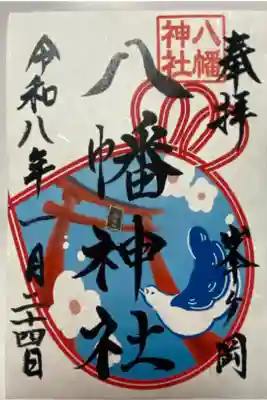 奉拝
峯ヶ岡
八幡
神社
八幡神社
令和八年
一月二十四日